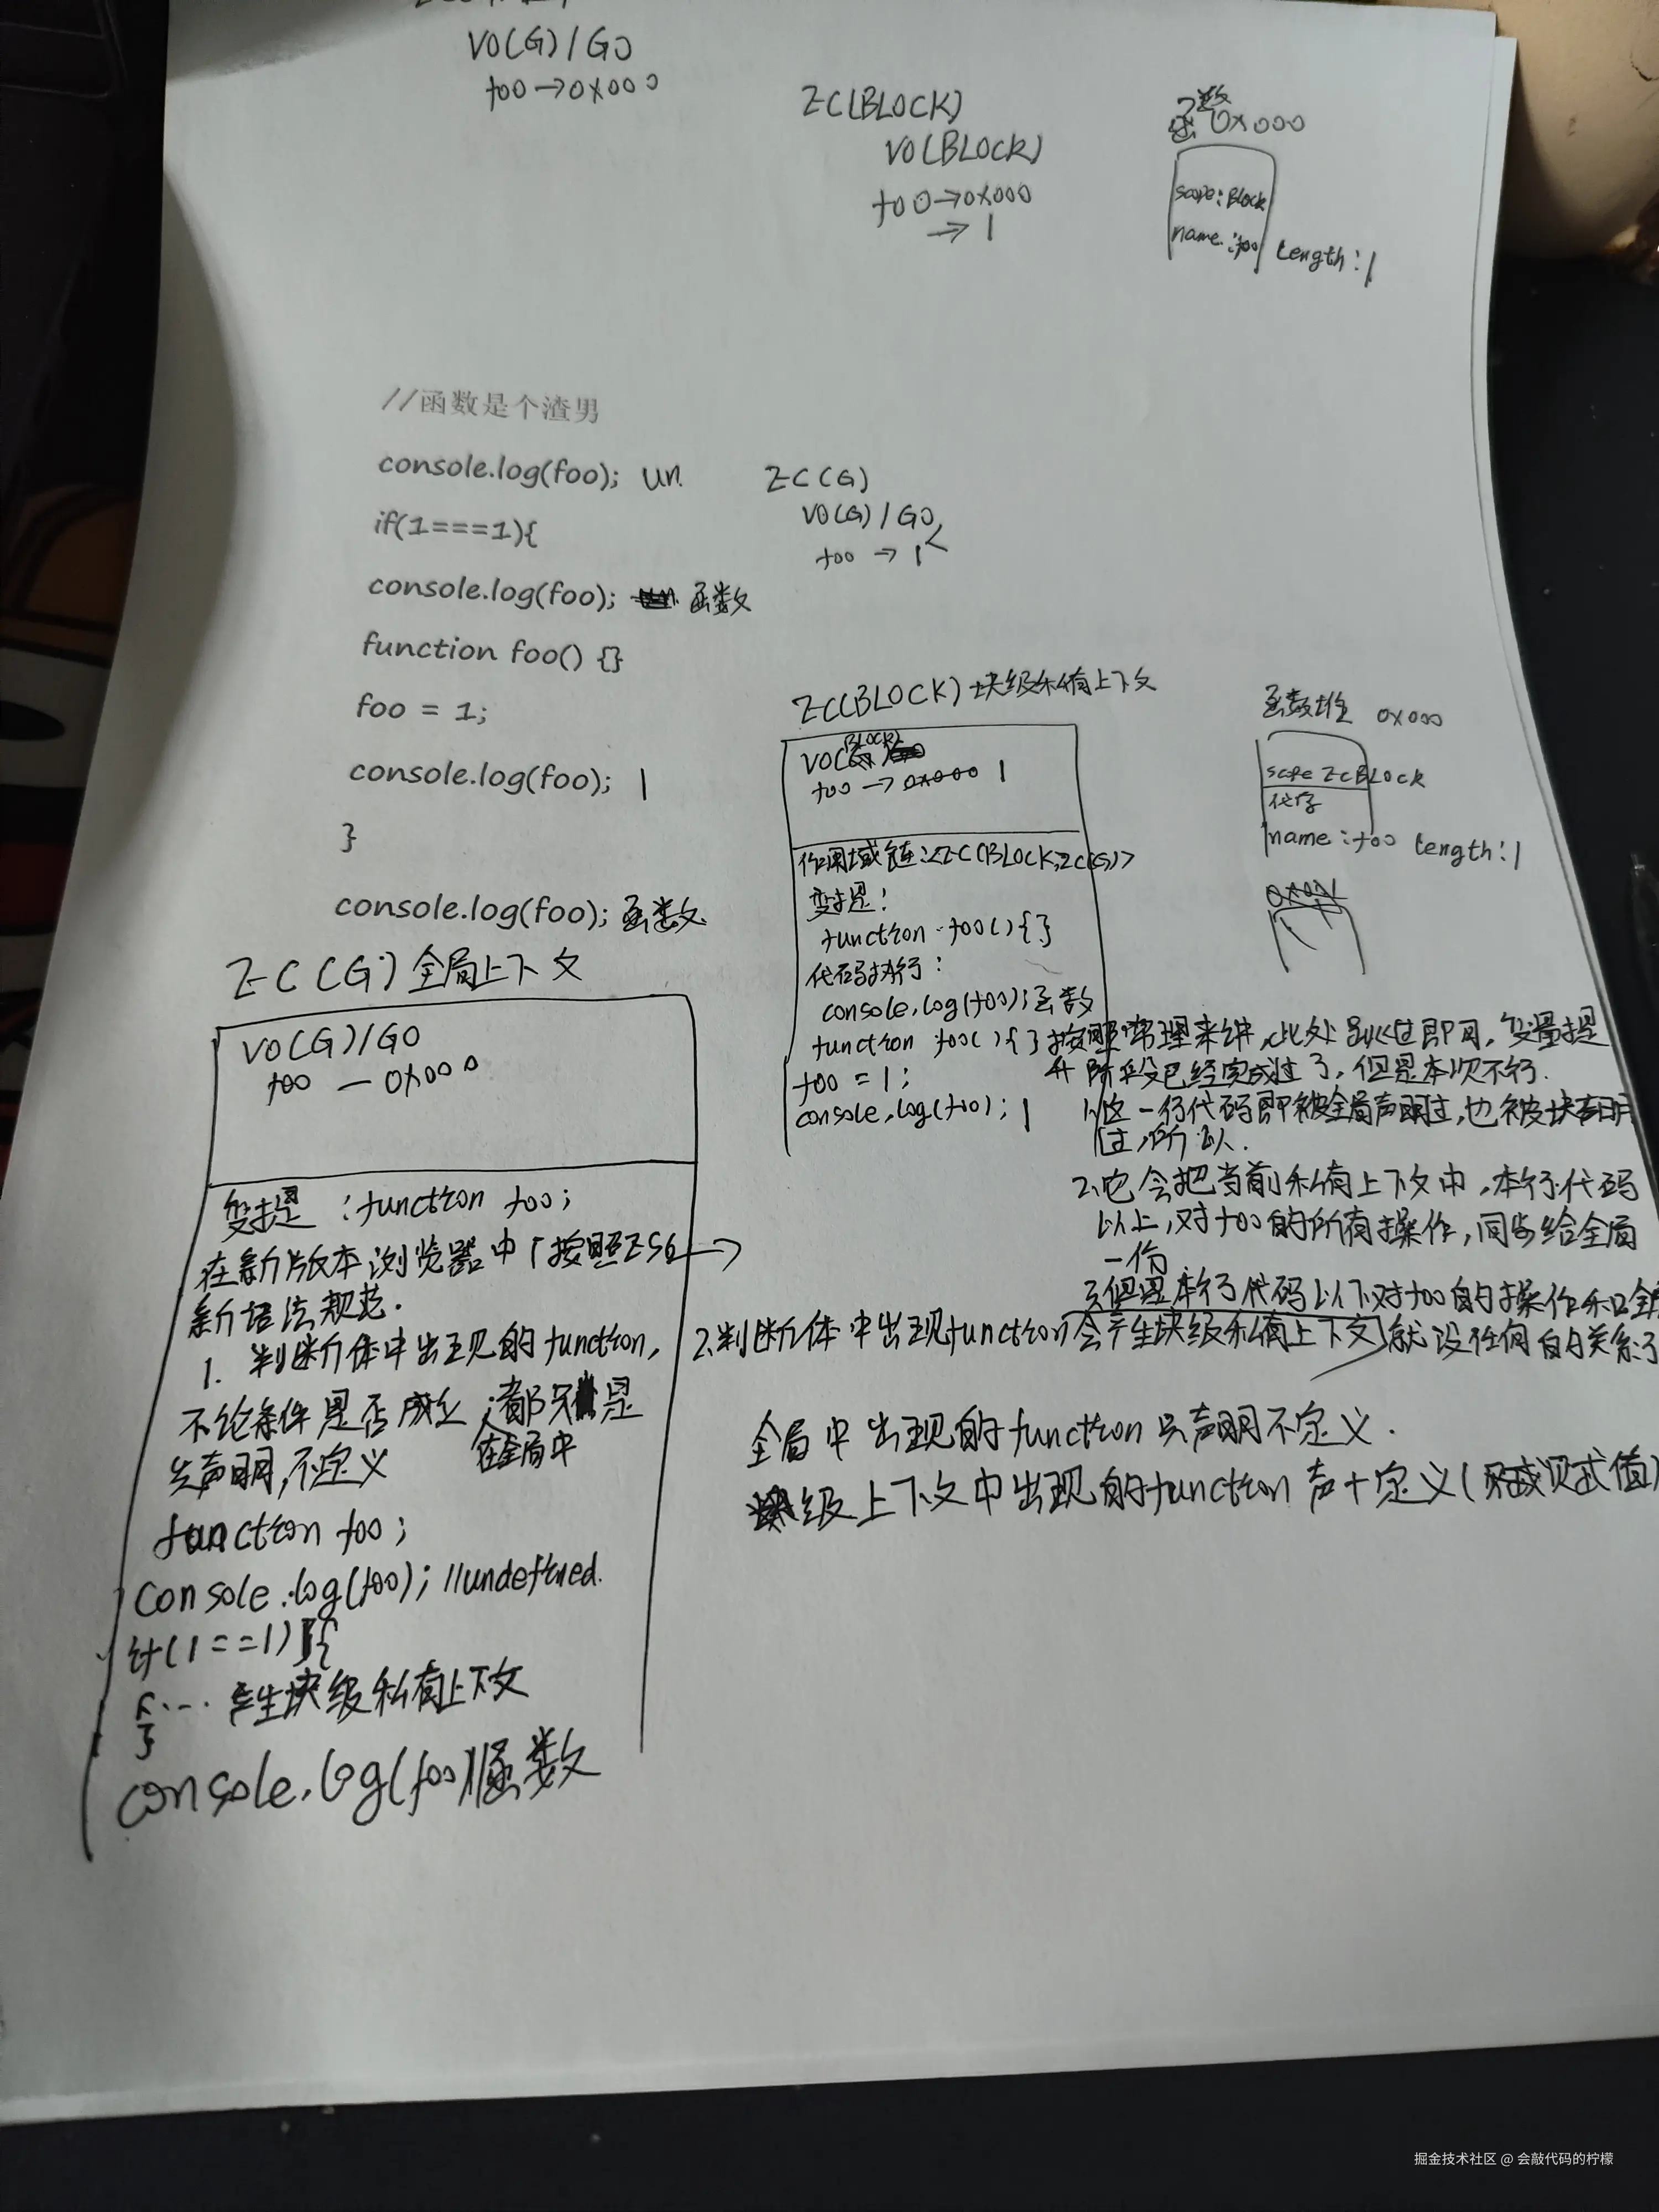 VO(G) / GO
foo → 0x000
EC(BLOCK)
VO(BLOCK)
foo → 0x000
→ 1
函数 0x000
scope: Block
name: foo length: 1
//函数是个渣男
console.log(foo); un.
if(1===1){
console.log(foo); 函数
function foo() {}
foo = 1;
console.log(foo); 1
}
console.log(foo); 函数
EC(G)
VO(G) / GO
foo → 1
EC(BLOCK) 块级私有上下文
VO(BLOCK)
foo → 0x000 1
作用域链:<EC(BLOCK,EC(G)>
变提:
function foo(){}
代码执行:
console.log(foo); 函数
function foo(){} 按照常理来讲,此处跳过即可,变量提
升阶段已经完成过了,但是本次不行.
foo = 1;
console.log(foo); 1
1.这一行代码即被全局声明过,也被块声明
过,所以.
2.它会把当前私有上下文中,本行代码
以上,对foo的所有操作,同步给全局
一份
3.但是本行代码以下对foo的操作和全局
就没任何的关系了
函数堆 0x000
scope EC BLOCK
name: foo length: 1
EC(G) 全局上下文
VO(G)/GO
foo — 0x000
变提: function foo;
在新版本浏览器中「按照ES6 →
新语法规范.
1. 判断体中出现的function,
不论条件是否成立,在全局中都只是
声明,不定义
function foo;
console.log(foo); //undefined.
if(1==1){
... 产生块级私有上下文
}
console.log(foo)//函数
2.判断体中出现function会产生块级私有上下文
全局中出现的function只声明不定义.
块级上下文中出现的function 声+定义(赋值)